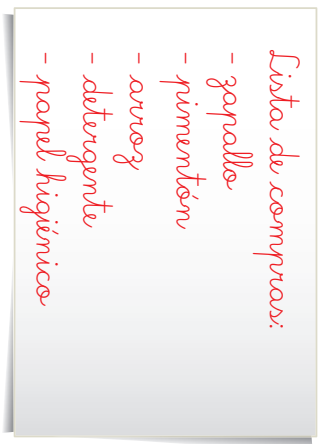 Lista de compras:
- zapallo
- pimentón
- arroz
- detergente
- papel higiénico